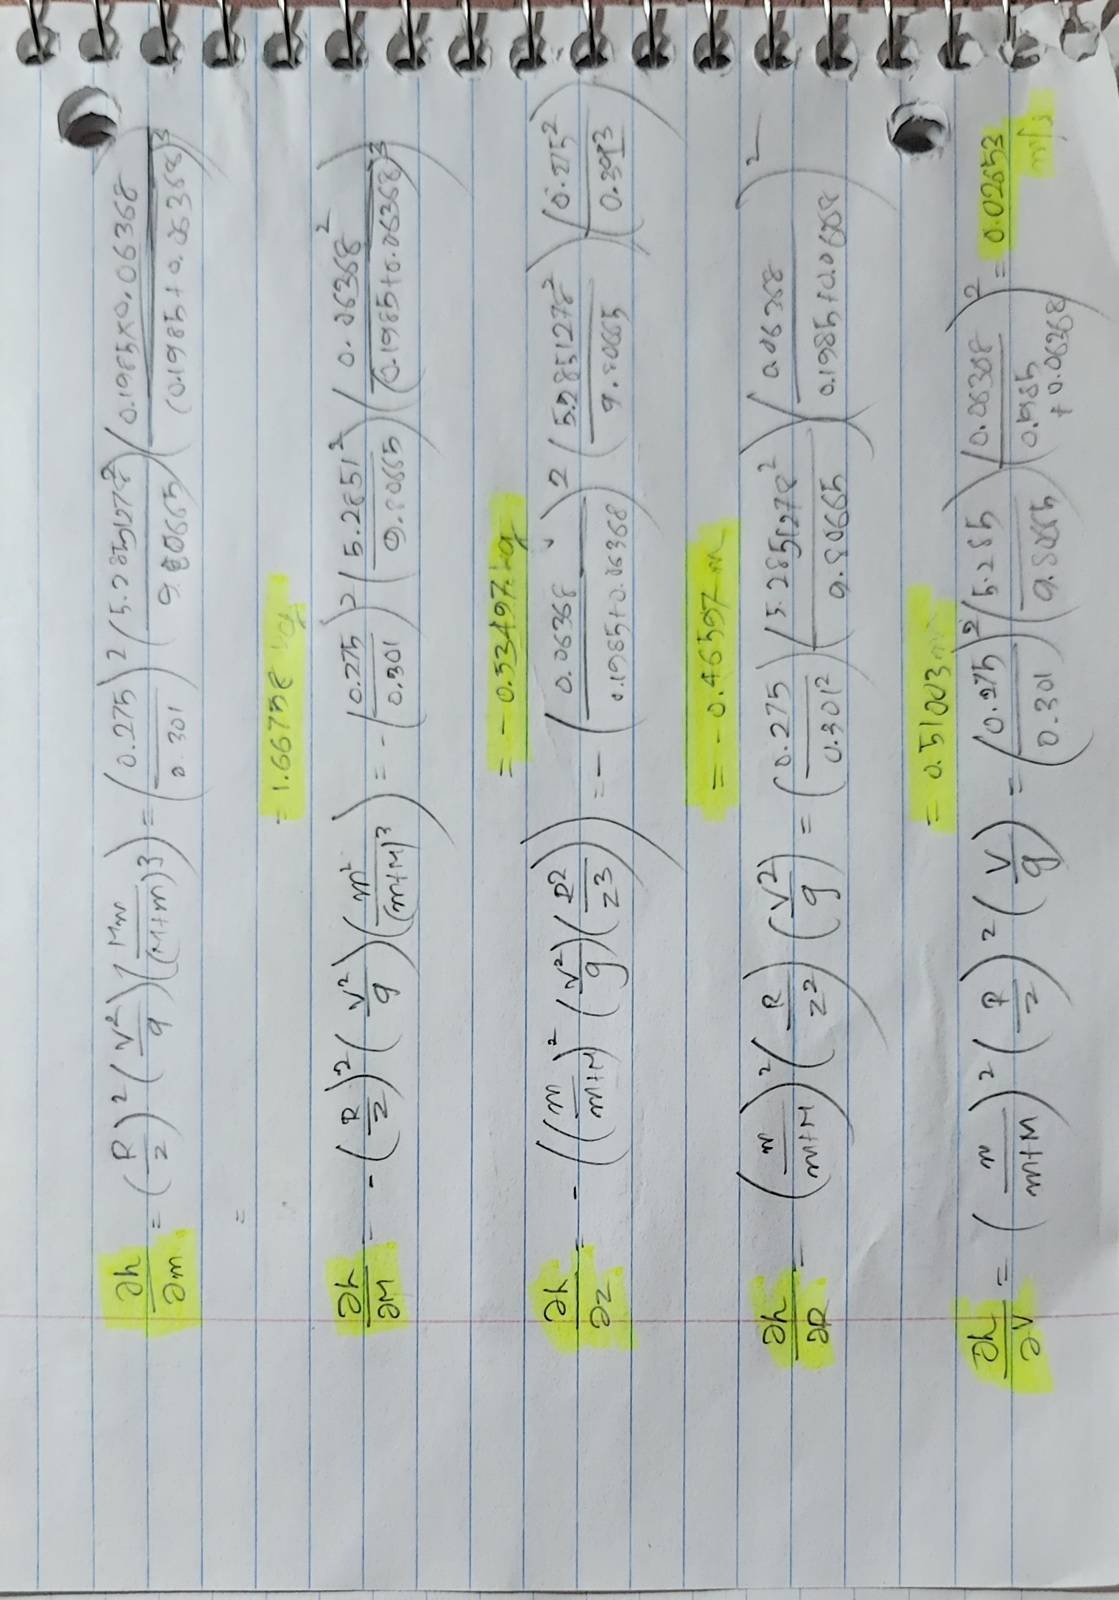 ∂h/∂m = (R/z)² (V²/g) (Mm/(M+m)³) = (0.275/0.301)² (5.2851278²/9.80665) (0.1985×0.06368/(0.1985+0.06368)³)
=
= 1.66758 kg
∂h/∂M = - (R/z)² (V²/g) (m²/(m+M)³) = - (0.275/0.301)² (5.2851²/9.80665) (0.06368²/(0.1985+0.06368)³)
= - 0.53497 kg
∂h/∂z = - ((m/(m+M))² (V²/g) (R²/z3)) = - (0.06368/(0.1985+0.06368))² (5.2851278²/9.80665) (0.275²/0.3013)
= - 0.46597 m
∂h/∂R = (m/(m+M))² (R/z2) (V²/g) = (0.275/0.301²) (5.2851278²/9.80665) (0.06368/(0.1985+0.06368))²
= 0.51003 m
∂h/∂V = (m/(m+M))² (R/z)² (V/g) = (0.275/0.301)² (5.285/9.80665) (0.06368/(0.1985+0.06368))² = 0.02653 m/s